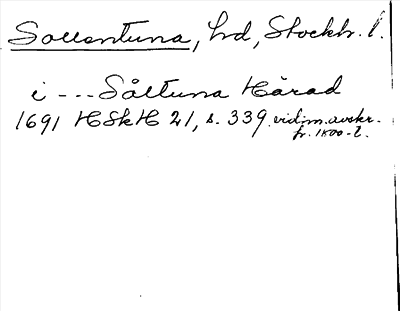 Sollentuna, hd, Stockh. l.
i --- Såltuna Härad
1691 HSkH 21, s. 339. vidim. avskr.
fr. 1800-t.